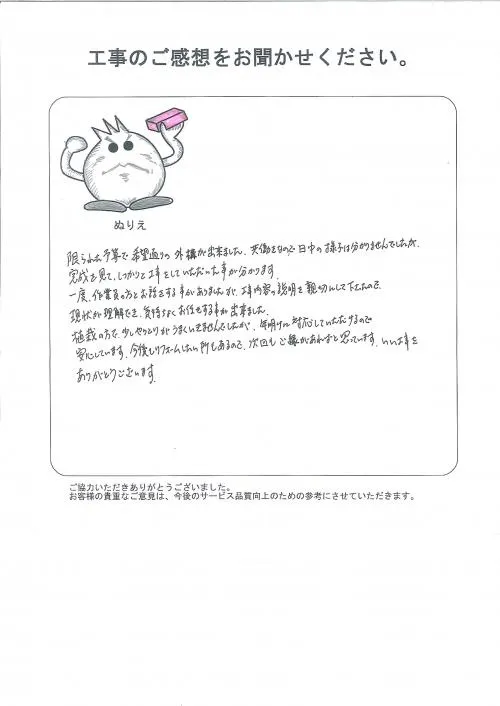 工事のご感想をお聞かせください。
ぬりえ
限られた予算で希望通りの外構が出来ました。共働きなので日中の様子は分かりませんでしたが、
完成を見て、しっかりと工事をしていただいた事が分かります。
一度、作業員の方とお話をする事がありましたが、工事内容の説明を親切にして下さったので
現状が理解でき、気持ちよくお任せする事が出来ました。
植栽の方で少しやりとりがうまくいきませんでしたが、年明けに対応していただけるので
安心しています。今後もリフォームしたい所もあるので、次回もご縁があればと思っています。いい工事を
ありがとうございます。
ご協力いただきありがとうございました。
お客様の貴重なご意見は、今後のサービス品質向上のための参考にさせていただきます。